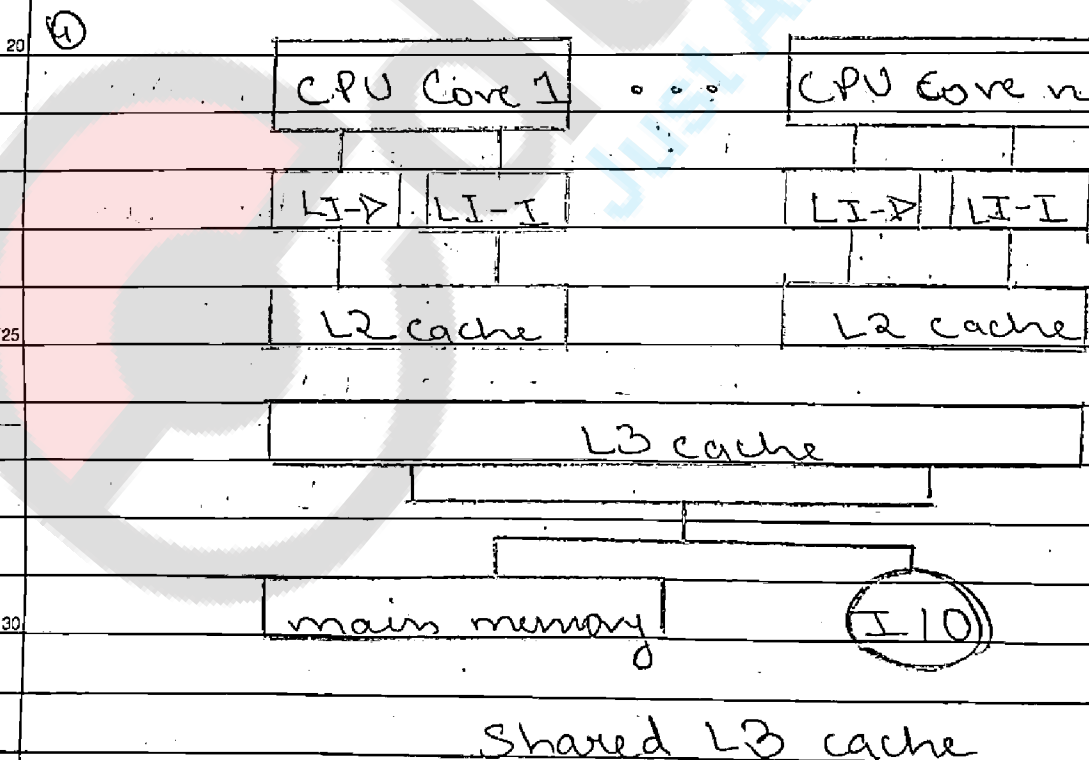 20 4
CPU Core 1 ... CPU Core n
L1-D L1-I L1-D L1-I
L2 cache L2 cache
25
L3 cache
main memory I/O
30
Shared L3 cache
Just A